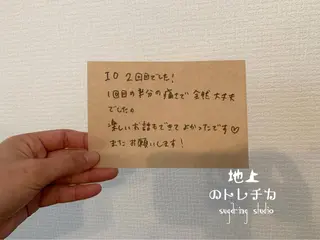 IO 2回目でした!
1回目の半分の痛さで全然大丈夫
でした。
楽しいお話もできてよかったです♡
またお願いします!
地上
のトレチカ
sugaring studio